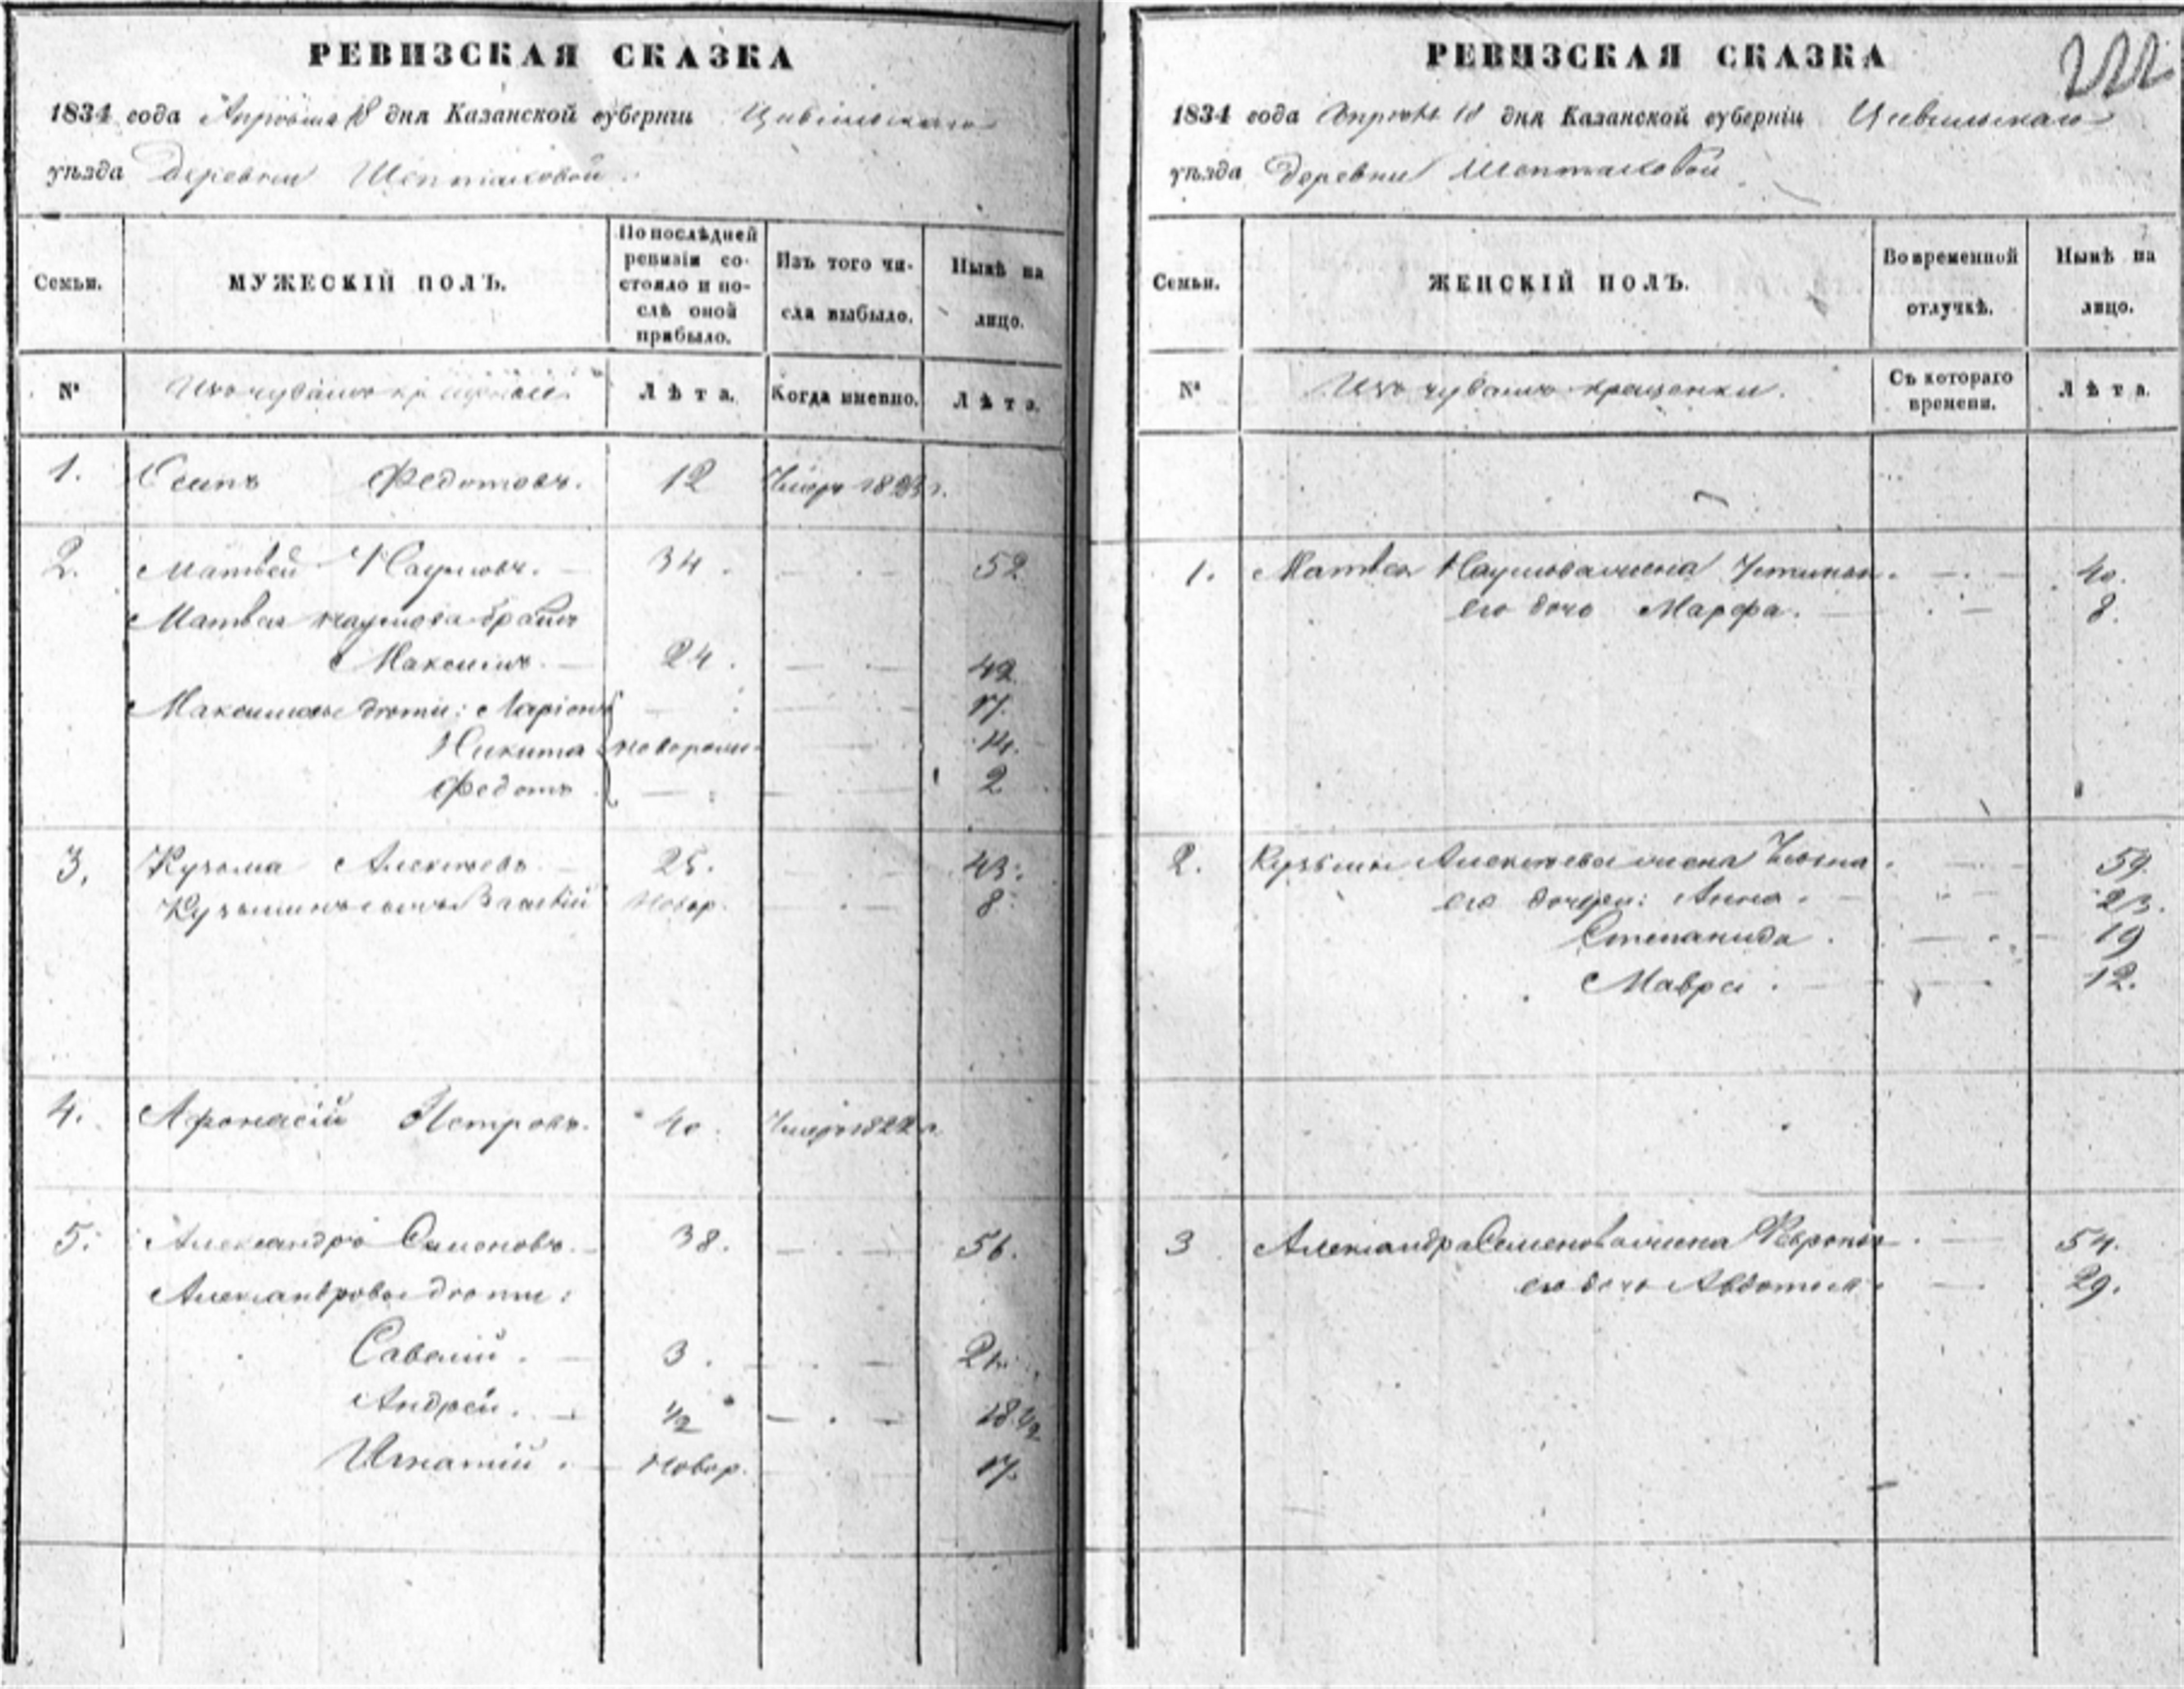 РЕВИЗСКАЯ СКАЗКА
1834 года Апреля 18 дня Казанской губерніи Цивильскаго
уѣзда Деревни Шептаховой.
Семьи.
МУЖЕСКІЙ ПОЛЪ.
По послѣдней
ревизіи со-
стояло и по-
слѣ оной
прибыло.
Изъ того чи-
сла выбыло.
Нынѣ на
лицо.
№
Изъ чувашъ крещеные
Лѣта.
Когда именно.
Лѣта.
1. Осипъ Федотовъ. 12
2. Матвей Наумовъ. 34. 52
Матвея наумова братъ
Максимъ. 24. 42
Максимовы дѣти: Ларіонъ 17.
Никита новорожд. 14.
Федотъ 2
3. Кузьма Алексѣевъ 25. 43.
Кузьминъ сынъ Власій Новор. 8.
4. Афонасій Петровъ. 40.
5. Александръ Семеновъ. 38. 56.
Александровы дѣти:
Савелій. 3. 21.
Андрей. 1/2 18 1/2
Игнатій. Новор. 17.
РЕВИЗСКАЯ СКАЗКА
222
1834 года Апреля 18 дня Казанской губерніи Цивильскаго
уѣзда Деревни Шептаховой
Семьи.
ЖЕНСКІЙ ПОЛЪ.
Во временной
отлучкѣ.
Нынѣ на
лицо.
№
Изъ чувашъ крещенки.
Съ котораго
времени.
Лѣта.
1. Матвея Наумова жена Устинья. 40.
его дочь Марфа. 8.
2. Кузьмы Алексѣева жена 59.
его дочери: Анна. 23.
Степанида. 19
Мавра. 12.
3 Александра Семенова жена Февронья. 54.
его дочь Авдотья. 29.